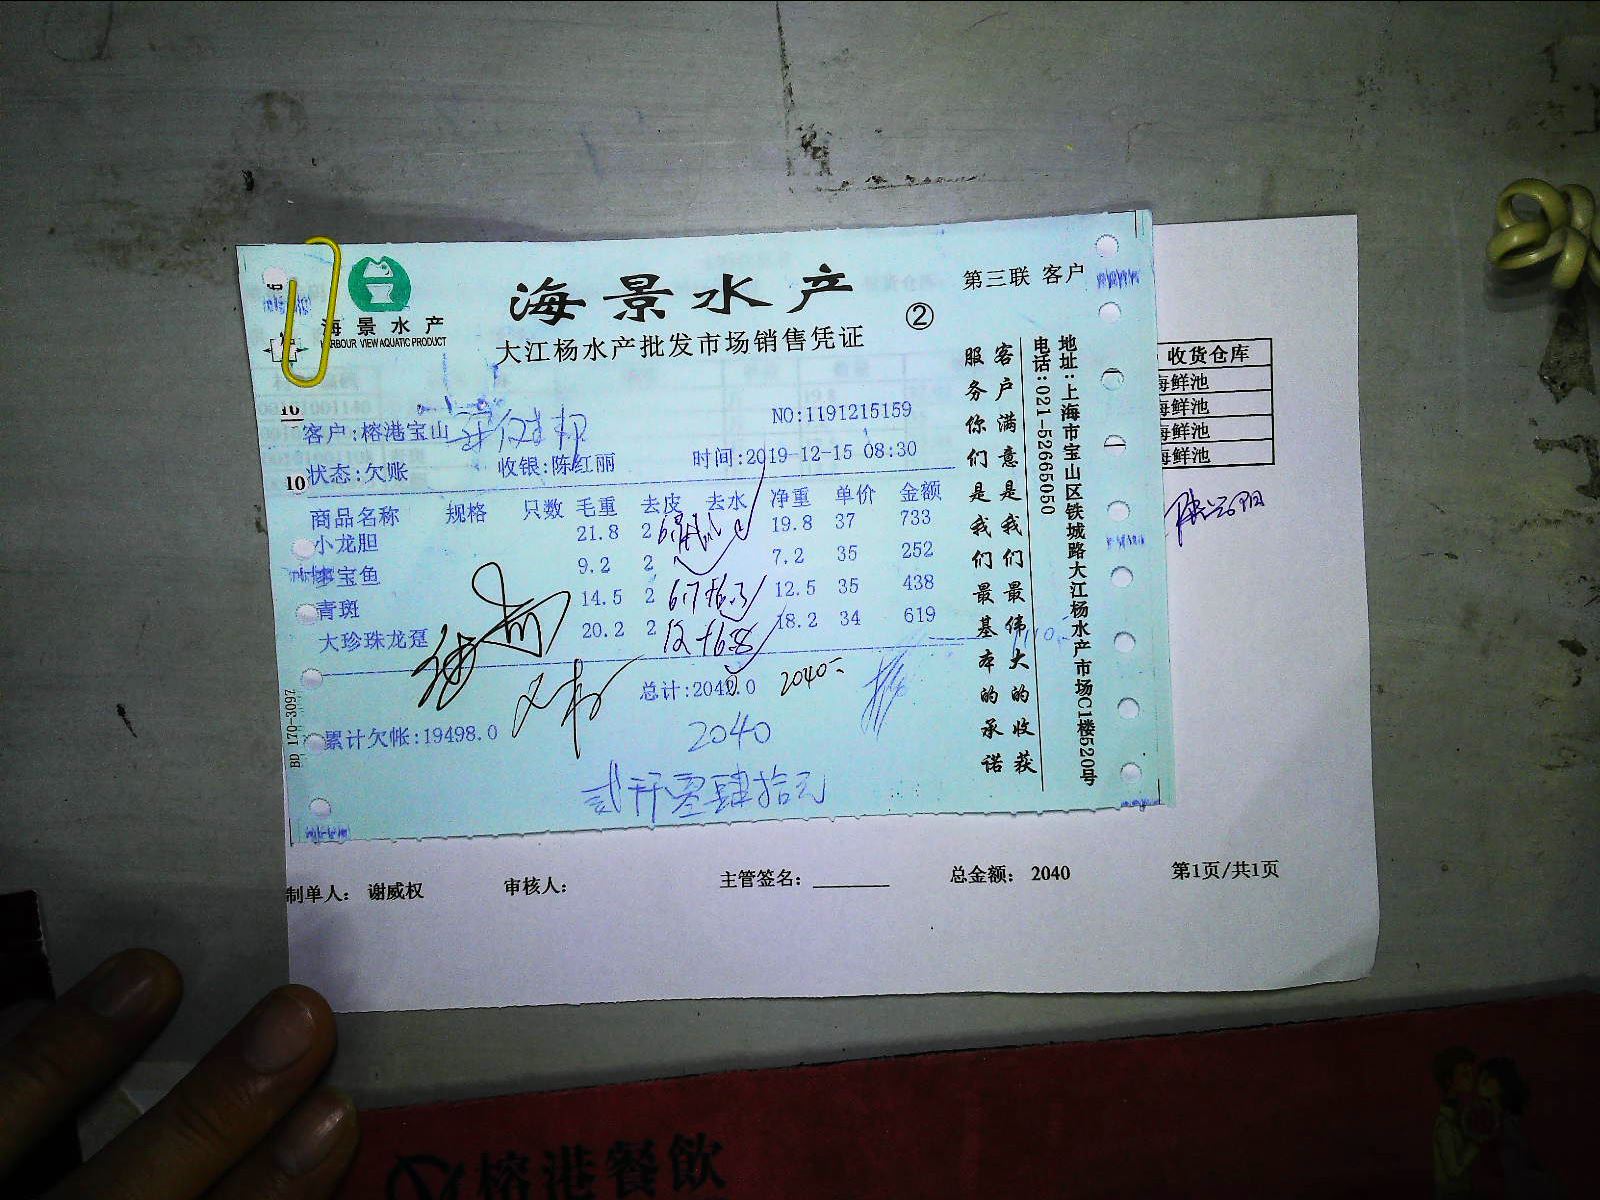 海景水产
HARBOUR VIEW AQUATIC PRODUCT
海景水产
大江杨水产批发市场销售凭证
②
第三联 客户
NO:1191215159
客户:榕港宝山
状态:欠账 收银:陈红丽 时间:2019-12-15 08:30
商品名称 规格 只数 毛重 去皮 去水 净重 单价 金额
小龙胆 21.8 2 19.8 37 733
多宝鱼 9.2 2 7.2 35 252
青斑 14.5 2 12.5 35 438
大珍珠龙趸 20.2 2 18.2 34 619
总计:2040.0 2040
累计欠帐:19498.0
2040
贰仟零肆拾元
客户满意是我们最伟大的收获
服务你们是我们最基本的承诺
地址:上海市宝山区铁城路大江杨水产市场C1楼520号
电话:021-52665050
BD 170-3097
10
收货仓库
海鲜池
海鲜池
海鲜池
海鲜池
制单人: 谢威权 审核人: 主管签名: 总金额: 2040 第1页/共1页
榕港餐飲